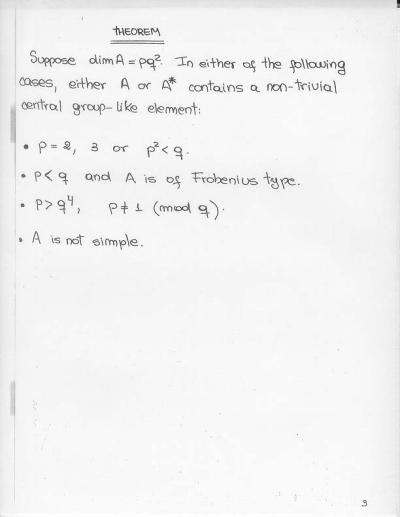 THEOREM
Suppose dim A = pq². In either of the following
cases, either A or A* contains a non-trivial
central group-like element:
• p = 2, 3 or p² < q.
• p < q and A is of Frobenius type.
• p > q⁴, p ≢ 1 (mod q).
• A is not simple.
3